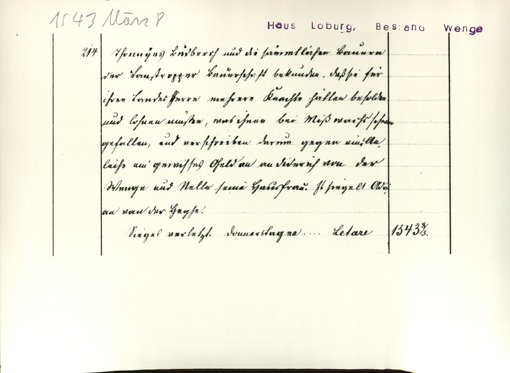 1543 März 8
Haus Loburg, Bestand Wenge
214 Thonnyes Budberch und die sämmtlichen Bauern
der Lanstropper Bauerschaft bekunden, daß sie für
ihren Landesherrn mehrere Knechte hätten besolden
und lohnen müssen, was ihnen bei Mißwachs schwer
gefallen, und verschreiben darum gegen eine An-
leihe ein gewisses Geld an Diderich von der
Wenge und Nelle seine Hausfrau. Es siegelt
an van der Heghe.
Siegel verletzt. Donnerstage .... Letare 1543 8/3.